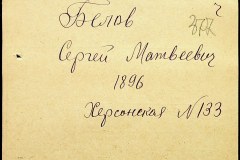 Белов
Сергей Матвеевич
1896
Херсонская N 133